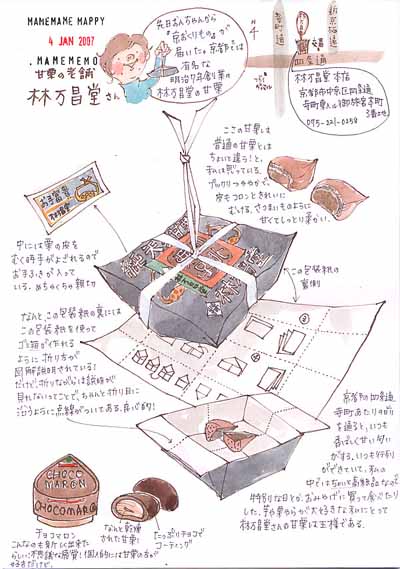 MAMEMAME MAPPY
4 JAN 2007
.MAMEMEMO
甘栗の老舗
林万昌堂さん
先日おんちゃんから
「京おくりもの」が
届いた。京都では
有名な
明治7年創業の
林万昌堂の甘栗
寺町通
新京極通
四条通
林万昌堂 本店
京都市中京区四条通
寺町東入ル御旅宮本町
3番地
075-221-0258
ここの甘栗は
普通の甘栗とは
ちょいと違う!と、
私は思っている。
プックリつややかで、
皮もコロンときれいに
むける。さつまいものように
甘くてしっとり柔らかい。
お手ふき
林万昌堂
中には栗の皮を
むく時手がよごれるので
おまふきが入って
いる。めちゃくちゃ親切
この包装紙の
裏側
なんと、この包装紙の裏には
この包装紙を使って
ゴミ箱が作れる
ように折り方が
図解説明されている!
だけど、折りながらは説明が
見れないってことで、ちゃんと折り目に
沿うように点線がついてある。良心的!
京都の四条通
寺町あたり
を通ると、いつも
香ばしく甘い匂い
がする。いつも行列
ができていて、私の
中ではちょいと高級品なので
特別な日とか、おみやげに買って食べたり
した。芋や栗やらが大好きな私にとって
林万昌堂さんの甘栗は王様である。
CHOCO
MARON
CHOCOMARON
チョコマロン
こんなのも新しく出来た
らしい!不思議な感覚!個人的には甘栗の方が
好きだけど。
なんと乾燥
された甘栗!
たっぷりチョコで
コーティング